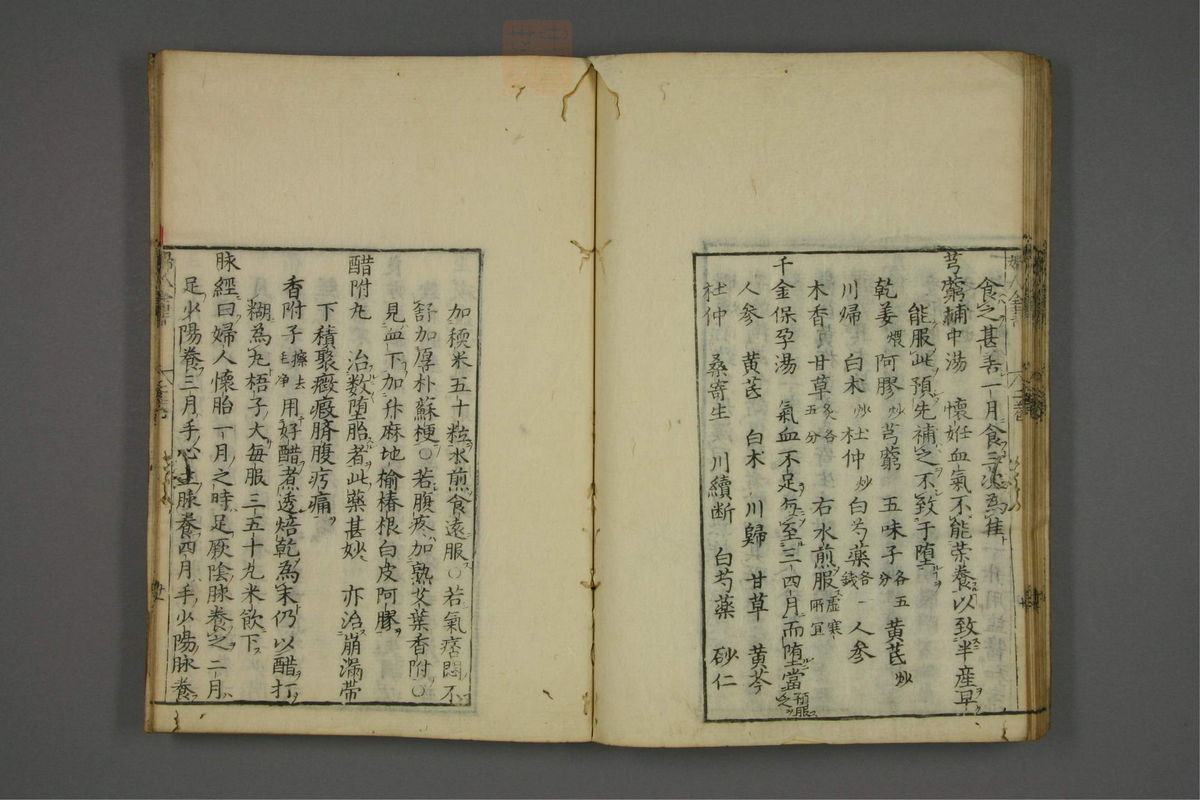 食之甚善一月食三次爲佳
芎藭補中湯　懷妊血氣不能榮養以致半産早
能服此預先補之不致于堕
乾姜煨　阿膠炒　芎藭　五味子各五分　黄芪炒
川歸　白朮炒　杜仲炒　白芍薬各一錢　人參
木香　甘草炙各五分　右水煎服虛寒所宜
千金保孕湯　氣血不足　至三四月而堕當預服之
人參　黄芪　白朮　川歸　甘草　黄芩
杜仲　桑寄生　川續断　白芍薬　砂仁
加糯米五十粒水煎食遠服○若氣痞悶不
舒加厚朴蘇梗○若腹疼加熟艾葉香附○
見血下加升麻地榆椿根白皮阿膠
醋附丸　治数堕胎者此藥甚妙　亦治崩漏帯
下積聚癥瘕臍腹疞痛
香附子擦去毛净　用好醋煮透焙乾為末仍以醋打
糊為丸梧子大毎服三五十丸米飲下
脉經曰婦人懷胎一月之時足厥陰脉養之二月
足少陽養三月手心主脉養四月手少陽脉養